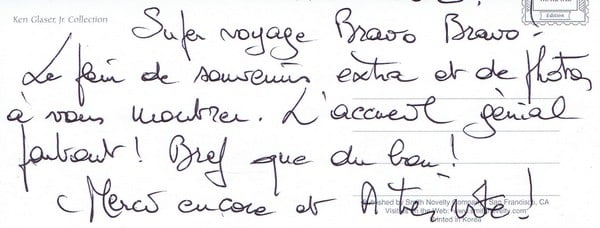 Ken Glaser, Jr. Collection
Edition
Super voyage Bravo Bravo -
Le plein de souvenirs extra et de photos
à vous montrer. L'accueil génial
partout ! Bref que du bon !
Merci encore et A très vite !
Published by Smith Novelty Company, San Francisco, CA
Visit us on the Web: www.smithnovelty.com
Printed in Korea